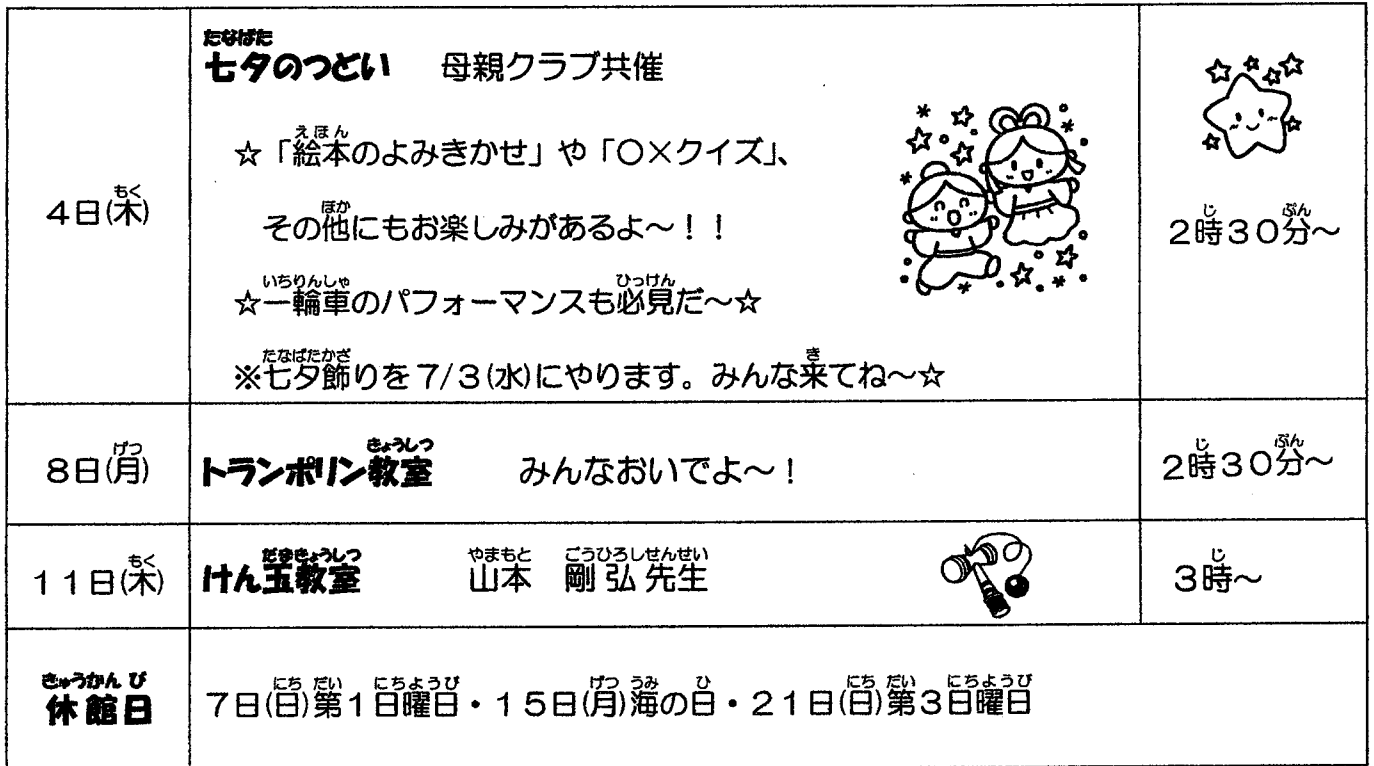 七夕のつどい 母親クラブ共催
☆「絵本のよみきかせ」や「○×クイズ」、
4日(木) その他にもお楽しみがあるよ～！！ 2時30分～
☆一輪車のパフォーマンスも必見だ～☆
※七夕飾りを7/3(水)にやります。みんな来てね～☆
8日(月) トランポリン教室 みんなおいでよ～！ 2時30分～
11日(木) けん玉教室 山本 剛弘先生 3時～
休館日 7日(日)第1日曜日・15日(月)海の日・21日(日)第3日曜日